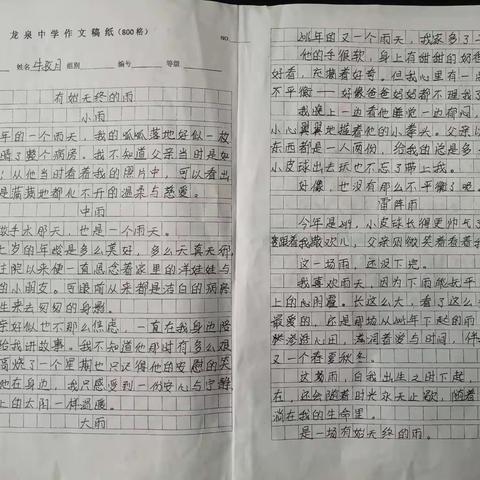 龙泉中学作文稿纸(800格)
NO.
姓名 组别 编号 等级
有始无终的雨
小雨
年的一个雨天,我的呱呱落地好似一枚
晴了整个病房。我不知道父亲当时是如
从他当时看着我的照片中,可以看出
是满满地都化不开的温柔与慈爱。
中雨
数手太那天,也是一个雨天。
七岁的年龄是多么美好,多么天真无邪,
住院以来便一直思念着家里的洋娃娃与
的小朋友。可眼前从来都是洁白的病房
生来去匆匆的身影。
亲好似也不那么焦虑,一直在我身边陪
给我讲故事。我不知道他那时有多么艰
高烧了一个星期也只记得他的安慰的笑
他在身边,我只感受到一份安心与宁静
上的太阳一样温暖。
大雨
年的又一个雨天,我家多了
他的手很软,身上有甜甜的奶香
好看,充满着好奇。但我心里有一点
不平衡——好像爸爸妈妈都不理我了
我晚上一边看他睡觉一边郁闷,
小心翼翼地握着他的小拳头。父亲
东西都是一人两份,给我的总是多一
小皮球出去玩也不忘了带上我。
好像,也没有那么不平衡了吧。
雷阵雨
今年是 ,小皮球长得更帅气了
跟着我撒欢儿,父亲则微笑看着我
这一场雨,还没下完。
我喜欢雨天,因为下雨能抚平
上的心阴霾。长这么大,看了这么
最爱的,还是那场从 年下起的雨
渗进心田,春润着爱与时间,伴
又一个春夏秋冬。
这场雨,自我出生之时下起
在,还会随着时长永无止歇,随着
淌在我的生命里。
是一场有始无终的雨。